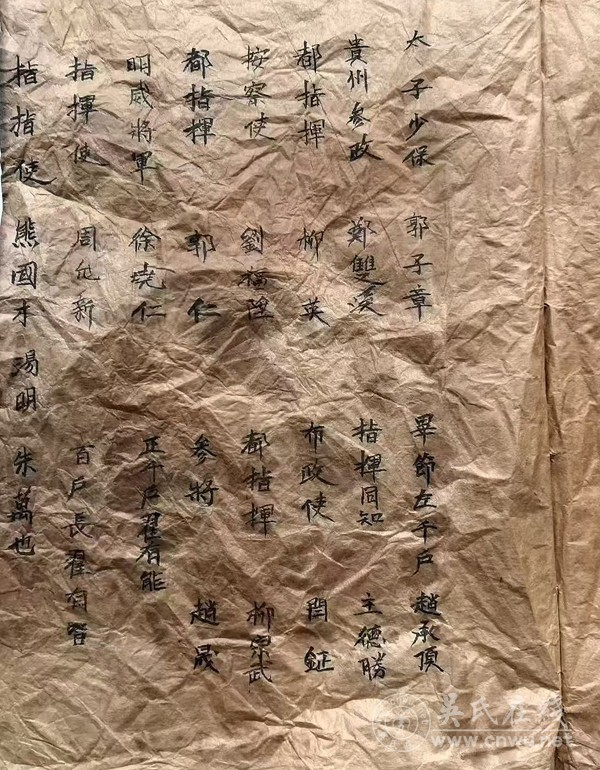 太子少保 郭子章 畢節左千戶 趙承頂
貴州參政 鄭雙溪 指揮同知 王德勝
都指揮 柳英 布政使 閆鉦
按察使 劉福陞 都指揮 柳 武
都指揮 郭仁 參將 趙晟
明威將軍 徐堯仁 正千戶 翟有能
指揮使 周 新 百戶長 翟有
指指使 熊國才 湯明 朱萬也
吴氏在线
www.cnwu.net